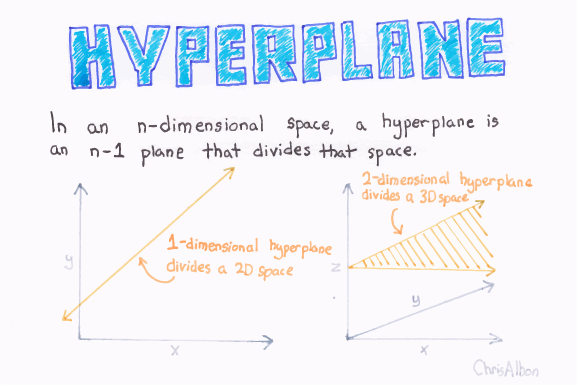 HYPERPLANE
In an n-dimensional space, a hyperplane is
an n-1 plane that divides that space.
y
1-dimensional hyperplane
divides a 2D space
x
2-dimensional hyperplane
divides a 3D space
z
y
x
ChrisAlbon